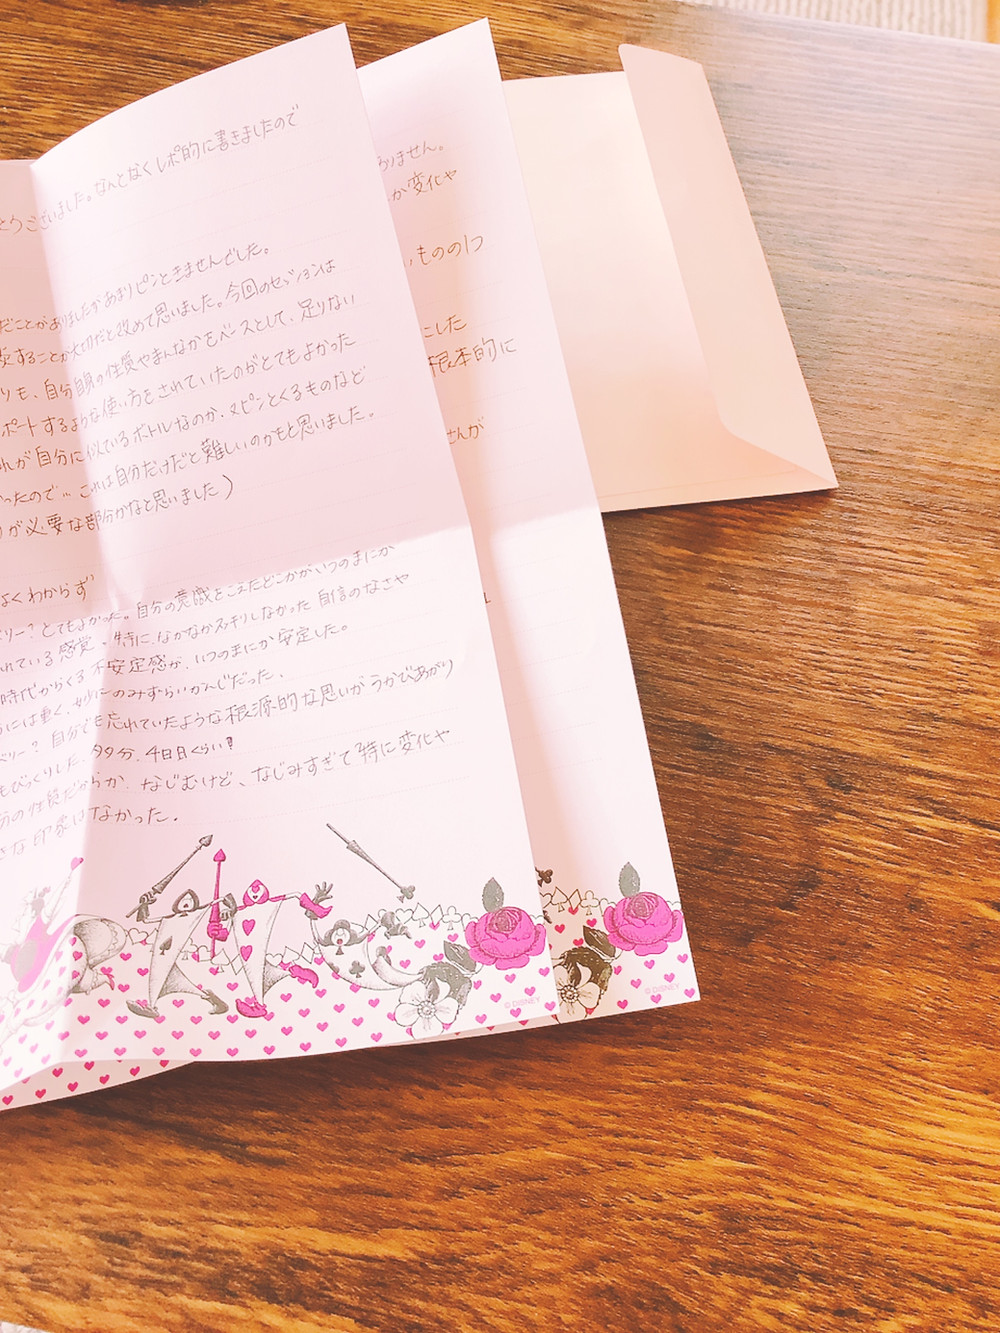 とうございました。なんとなくレポ的に書きましたので
だことがありましたがあまりピンときませんでした。
することが大切だと改めて思いました。今回のセッションは
りも、自分自身の性質やまんなかをベースとして、足りない
ポートするような使い方をされていたのがとてもよかった
れが自分に似ているボトルなのか、ピンとくるものなど
かったので… これは自分だけだと難しいのかもと思いました。
が必要な部分かなと思いました）
よくわからず
リー？とてもよかった。自分の意識をこえたどこかがいつのまにか
れている感覚。特に、なかなかスッキリしなかった 自信のなさや
時代からくる不安定感が、いつのまにか安定した。
うには重く、妙にのみずらいかんじだった。
ベリー？ 自分でも忘れていたような根源的な思いがうかびあがり
もびっくりした。多分、4日目くらい？
分の性質だからか、なじむけど、なじみすぎて特に変化や
きな印象はなかった。
© DISNEY
りません。
か変化や
ものの1つ
こした
根本的に
さんが
© DISNEY